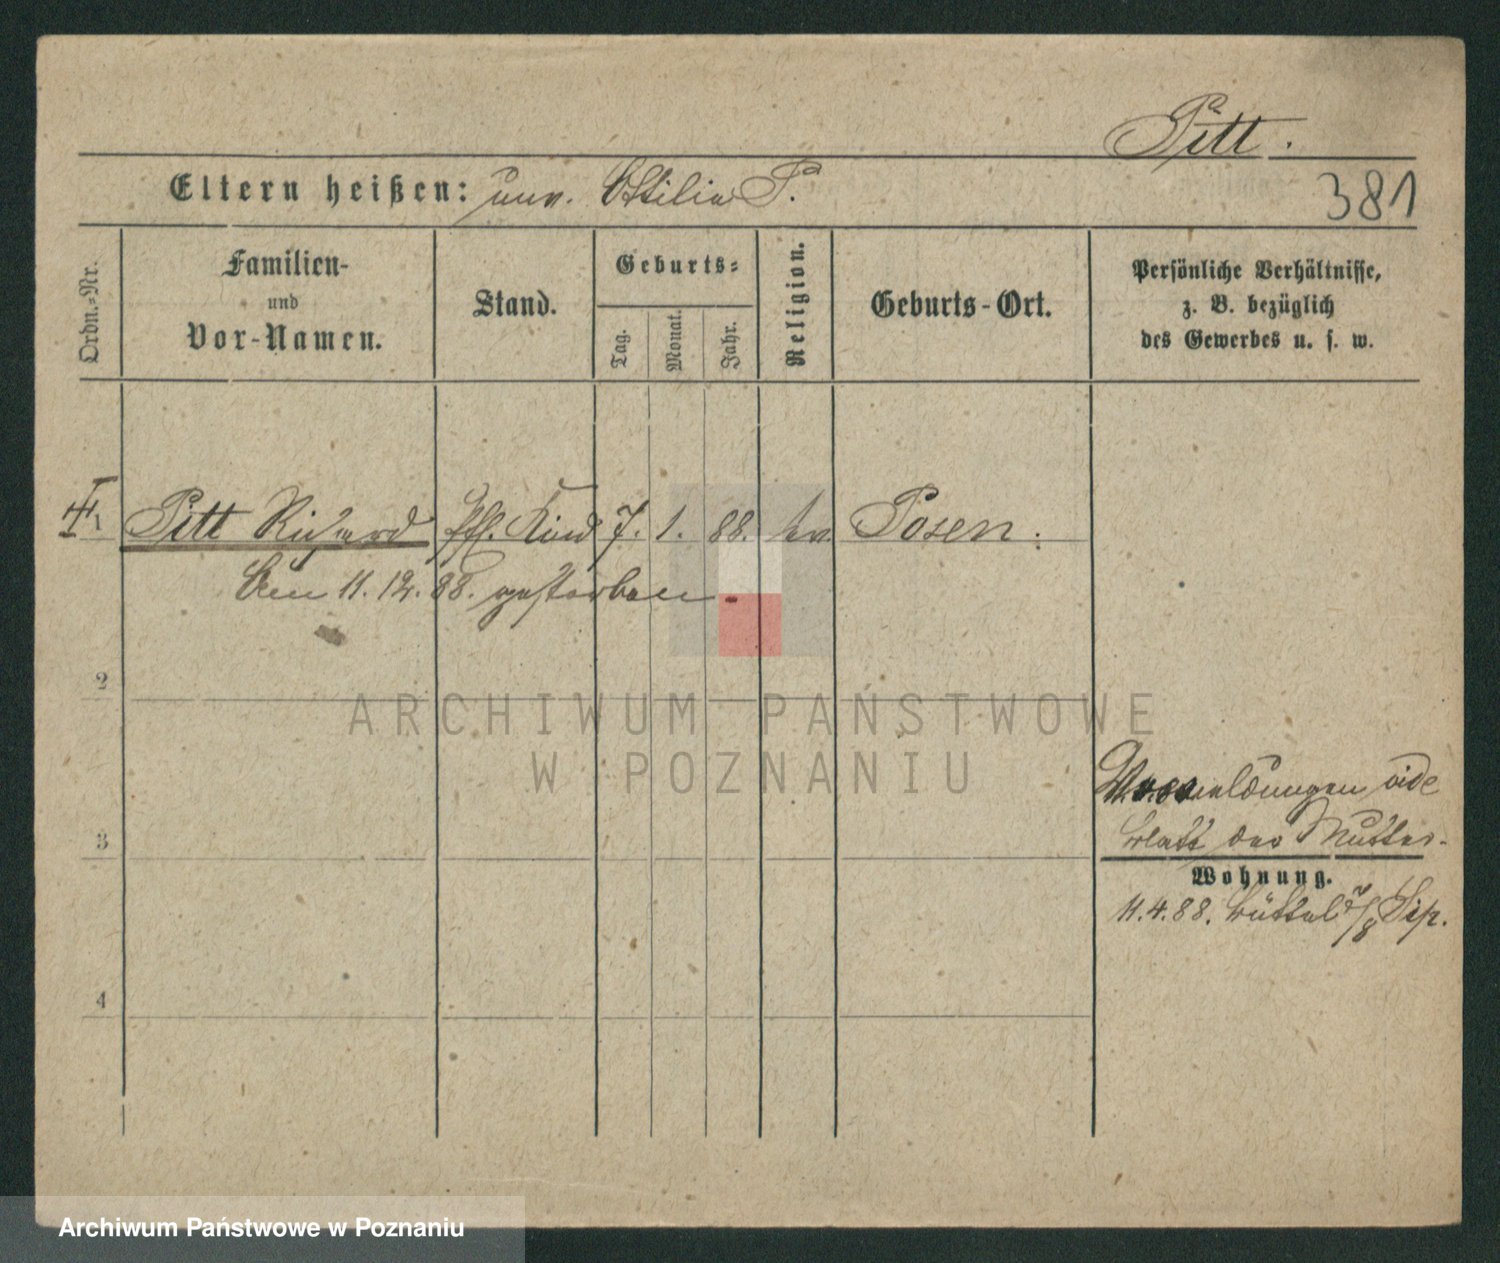 Pitt.
Eltern heißen: unv. Ottilie P.
381
Ordn.-Nr.
Familien-
und
Vor-Namen.
Stand.
Geburts-
Tag.
Monat.
Jahr.
Religion.
Geburts-Ort.
Persönliche Verhältnisse,
z. B. bezüglich
des Gewerbes u. s. w.
1 Pitt Richard Pfl. Kind 7. 1. 88. ev. Posen.
Am 11. 12. 88. gestorben
2
ARCHIWUM PAŃSTWOWE
W POZNANIU
vide
3
Blatt der Mutter.
Wohnung.
11.4.88. Büttel 7/8
4
Archiwum Państwowe w Poznaniu